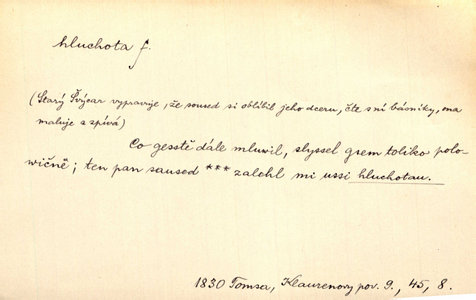 hluchota f.
(Starý Švýcar vypravuje, že soused si oblíbil jeho dceru, čte s ní básníky, ona
maluje a zpívá)
Co gesstě dále mluwil, slyssel gsem toliko polo-
wičně; ten pan saused *** zalohl mi ussi hluchotau.
1830 Tomsa, Klaurenovy pov. 9., 45, 8.